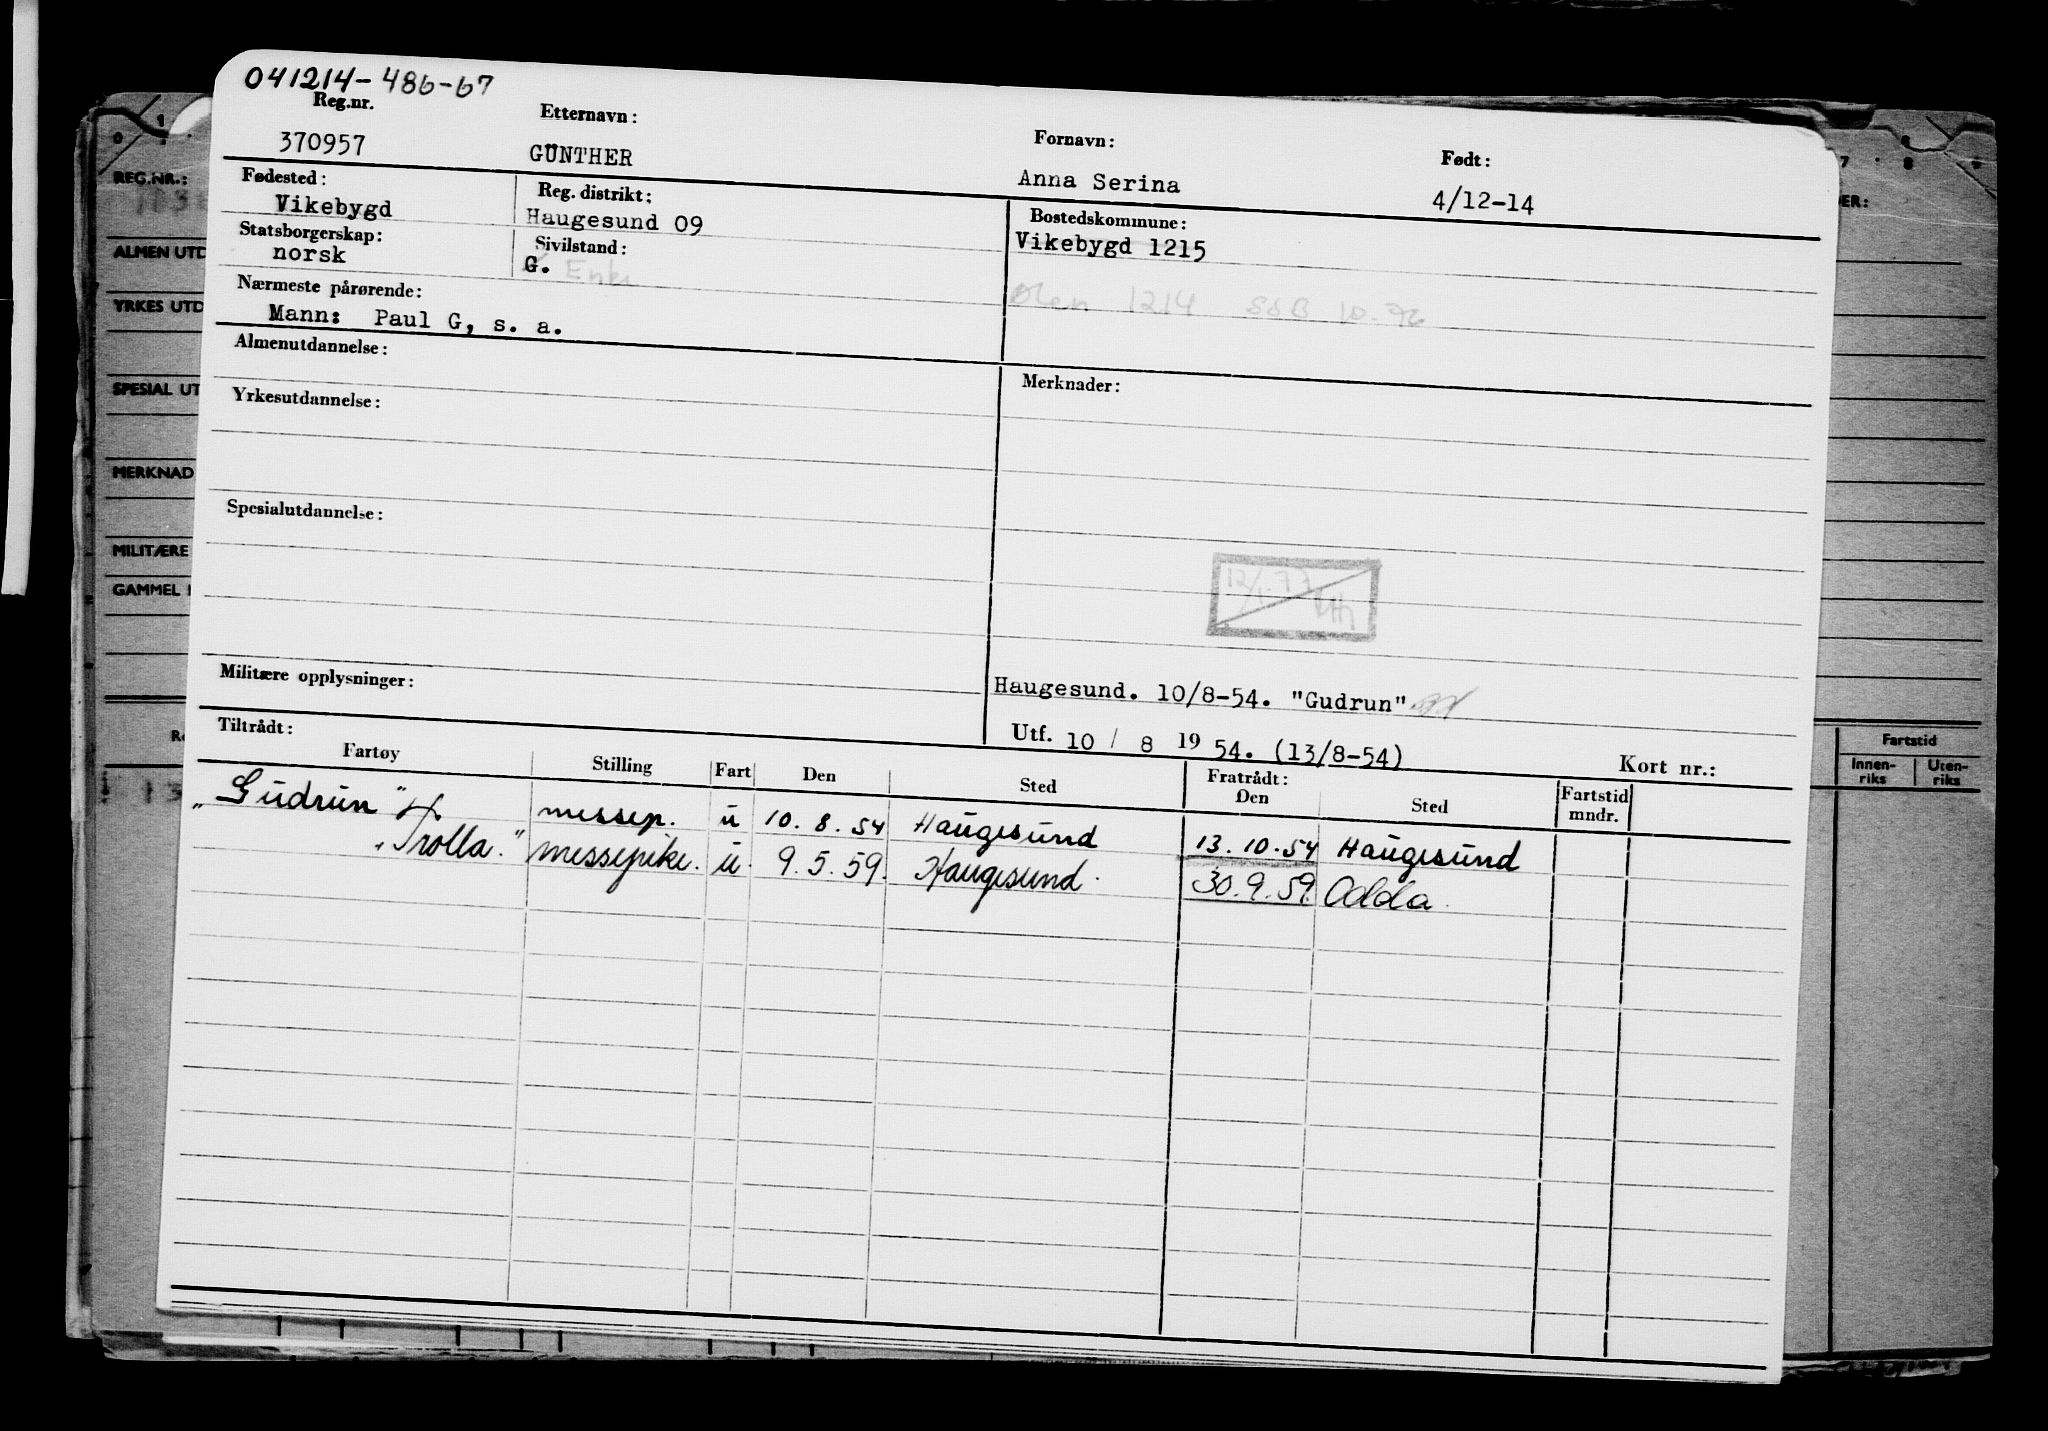 041214-486-67
Reg.nr. Etternavn: Fornavn: Født:
370957 GÜNTHER Anna Serina 4/12-14
Fødested: Reg. distrikt: Bostedskommune:
Vikebygd Haugesund 09 Vikebygd 1215
Statsborgerskap: Sivilstand:
norsk G. Enke
Ølen 1214 SSB 10.76
Nærmeste pårørende:
Mann: Paul G, s. a.
Almenutdannelse: Merknader:
Yrkesutdannelse:
Spesialutdannelse:
12/1.73
Militære opplysninger:
Haugesund. 10/8-54. "Gudrun"
Utf. 10 / 8 19 54. (13/8-54) Kort nr.:
Tiltrådt: Fratrådt:
Fartøy Stilling Fart Den Sted Den Sted Fartstid mndr.
"Gudrun" messep. u 10.8.54 Haugesund 13.10.54 Haugesund
"Trolla." messepike. u. 9.5.59. Haugesund. 30.9.59. Odda.
REG.NR.:
ALMEN UTD
YRKES UTD
SPESIAL UT
MERKNAD
MILITÆRE
GAMMEL
ER:
Fartstid
Innen-riks Uten-riks